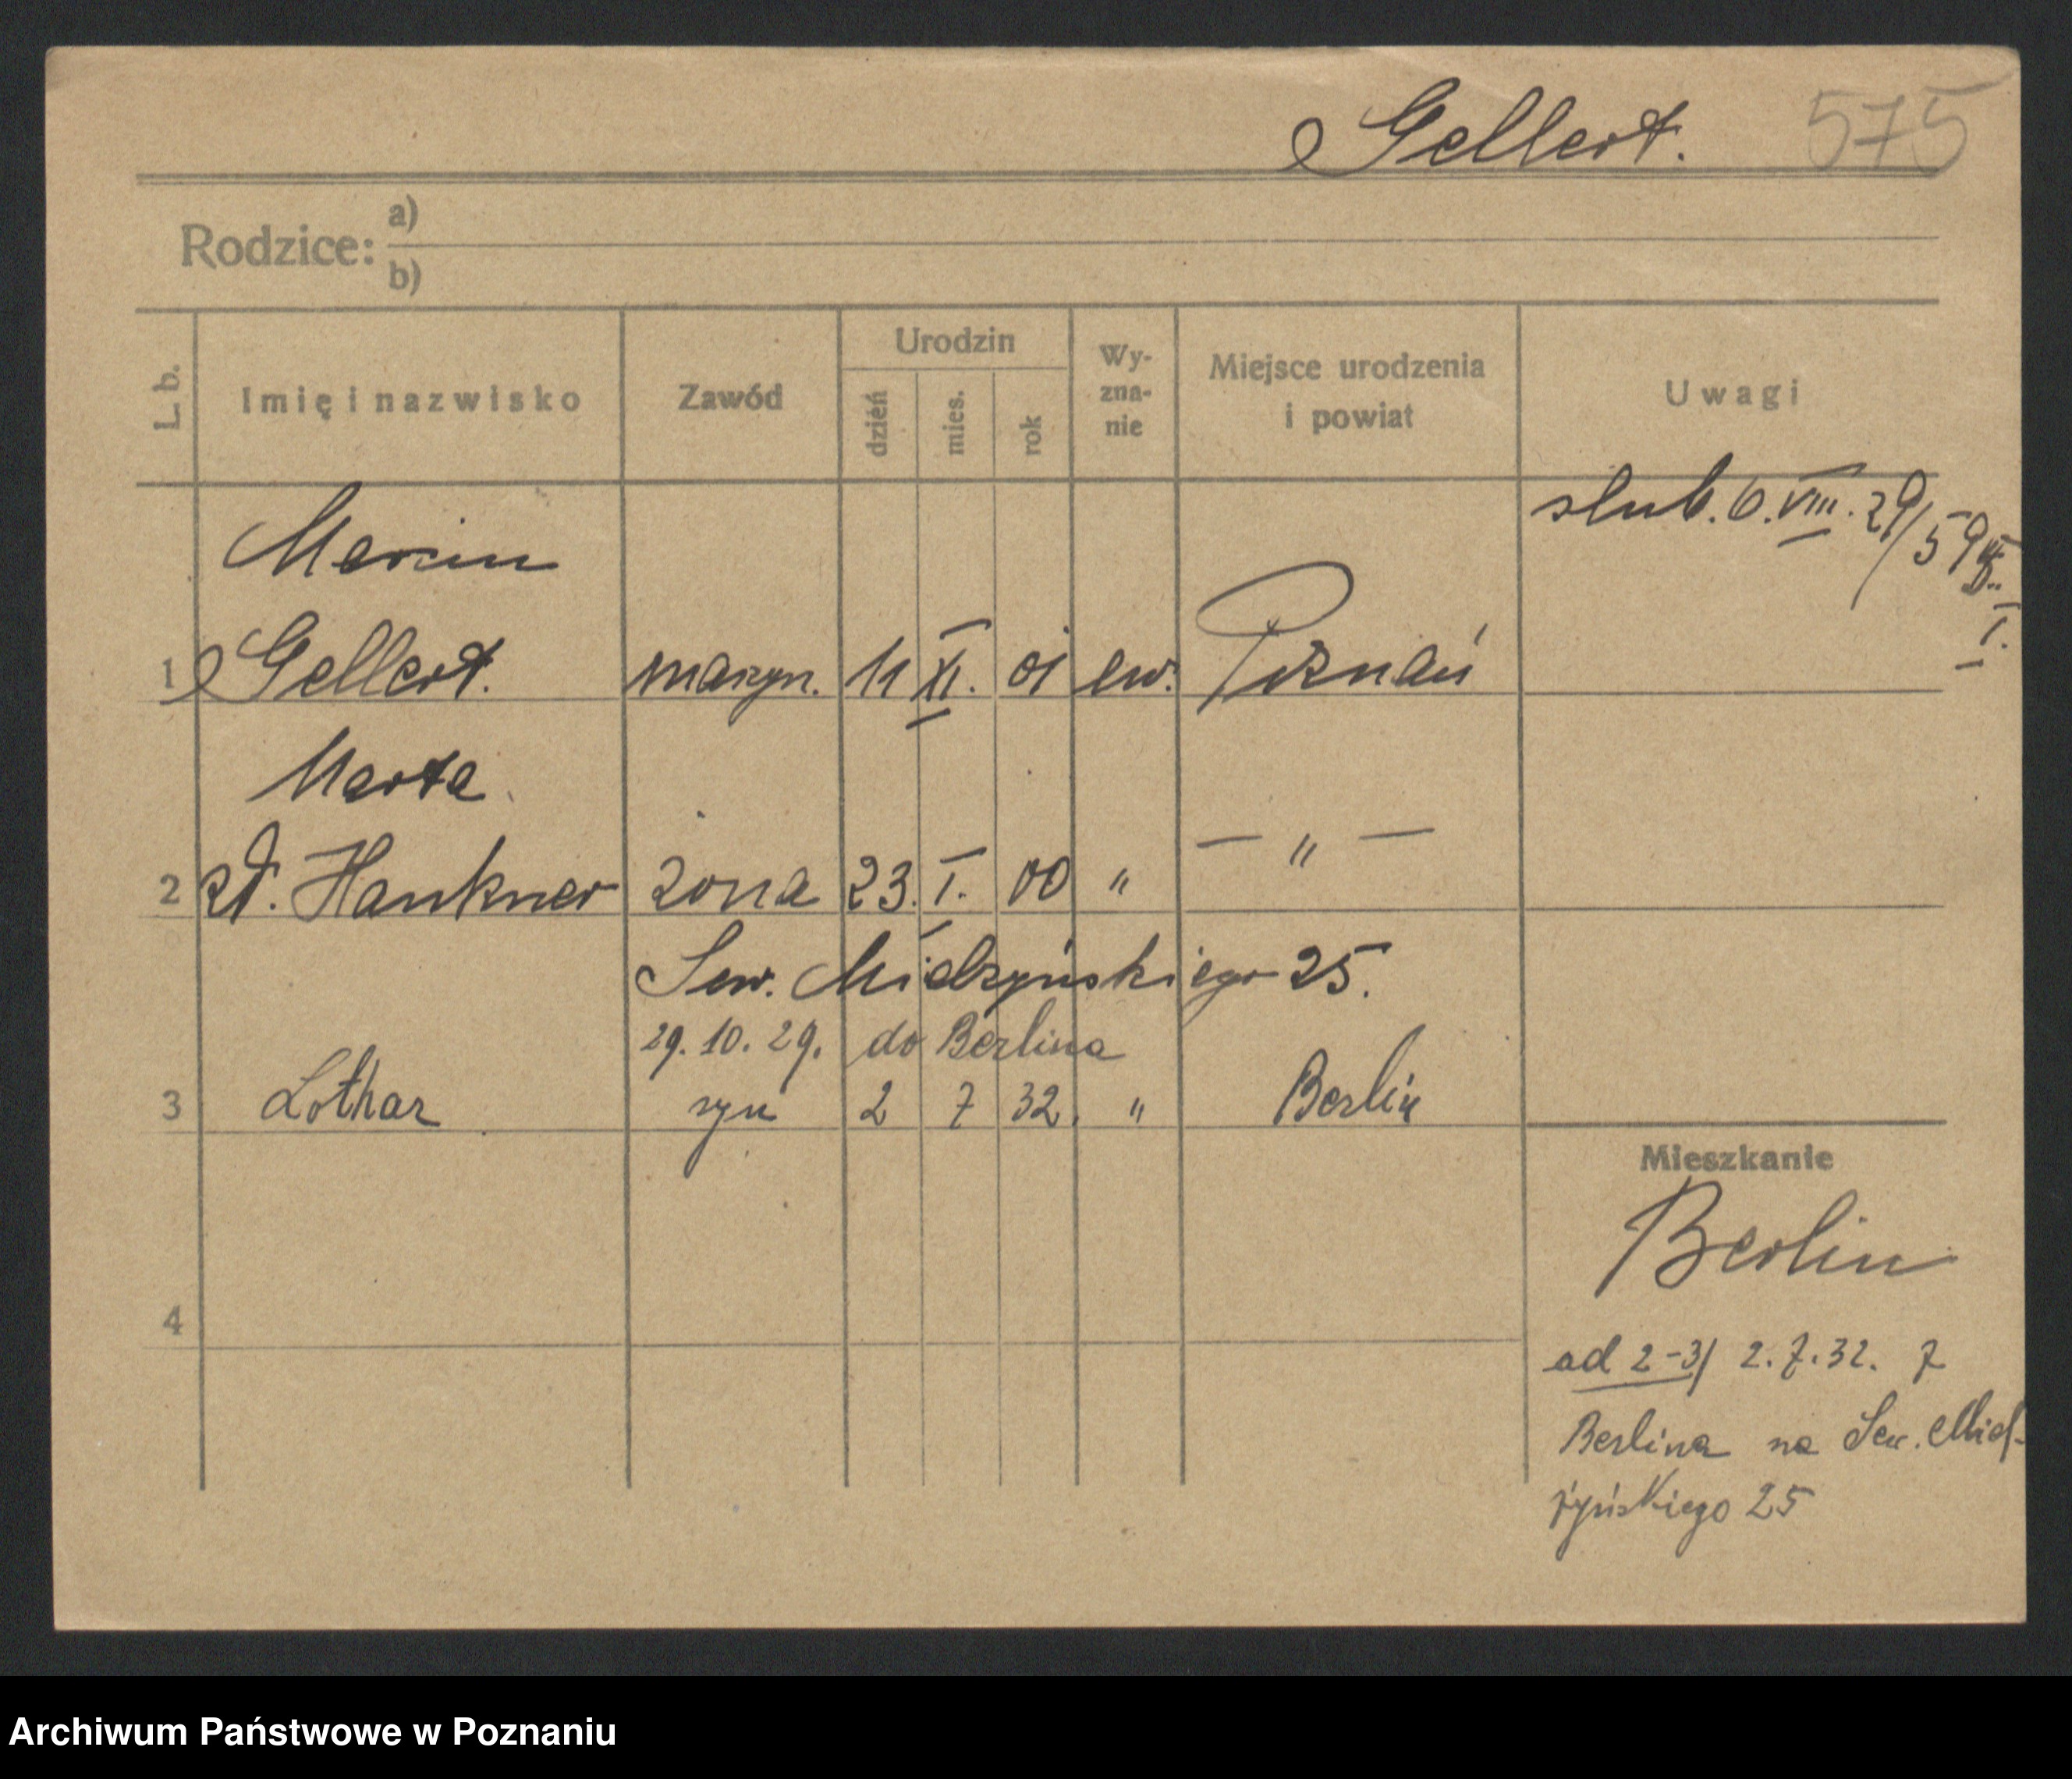 Gellert. 575
Rodzice: a)
b)
L. b. Imię i nazwisko Zawód Urodzin dzień mies. rok Wyznanie Miejsce urodzenia i powiat Uwagi
ślub. 6. VIII. 29/59
I.
Marcin
1 Gellert. maszyn. 11 XI. 01 ew. Poznań
Marta
2 zd. Hankner żona 23. I. 00 " — " —
Sew. Mielżyńskiego 25.
29. 10. 29. do Berlina
3 Lothar syn 2 7 32. " Berlin
Mieszkanie
Berlin
4
ad 2-3/ 2.7.32. z
Berlina na Sew. Miel-
żyńskiego 25
Archiwum Państwowe w Poznaniu